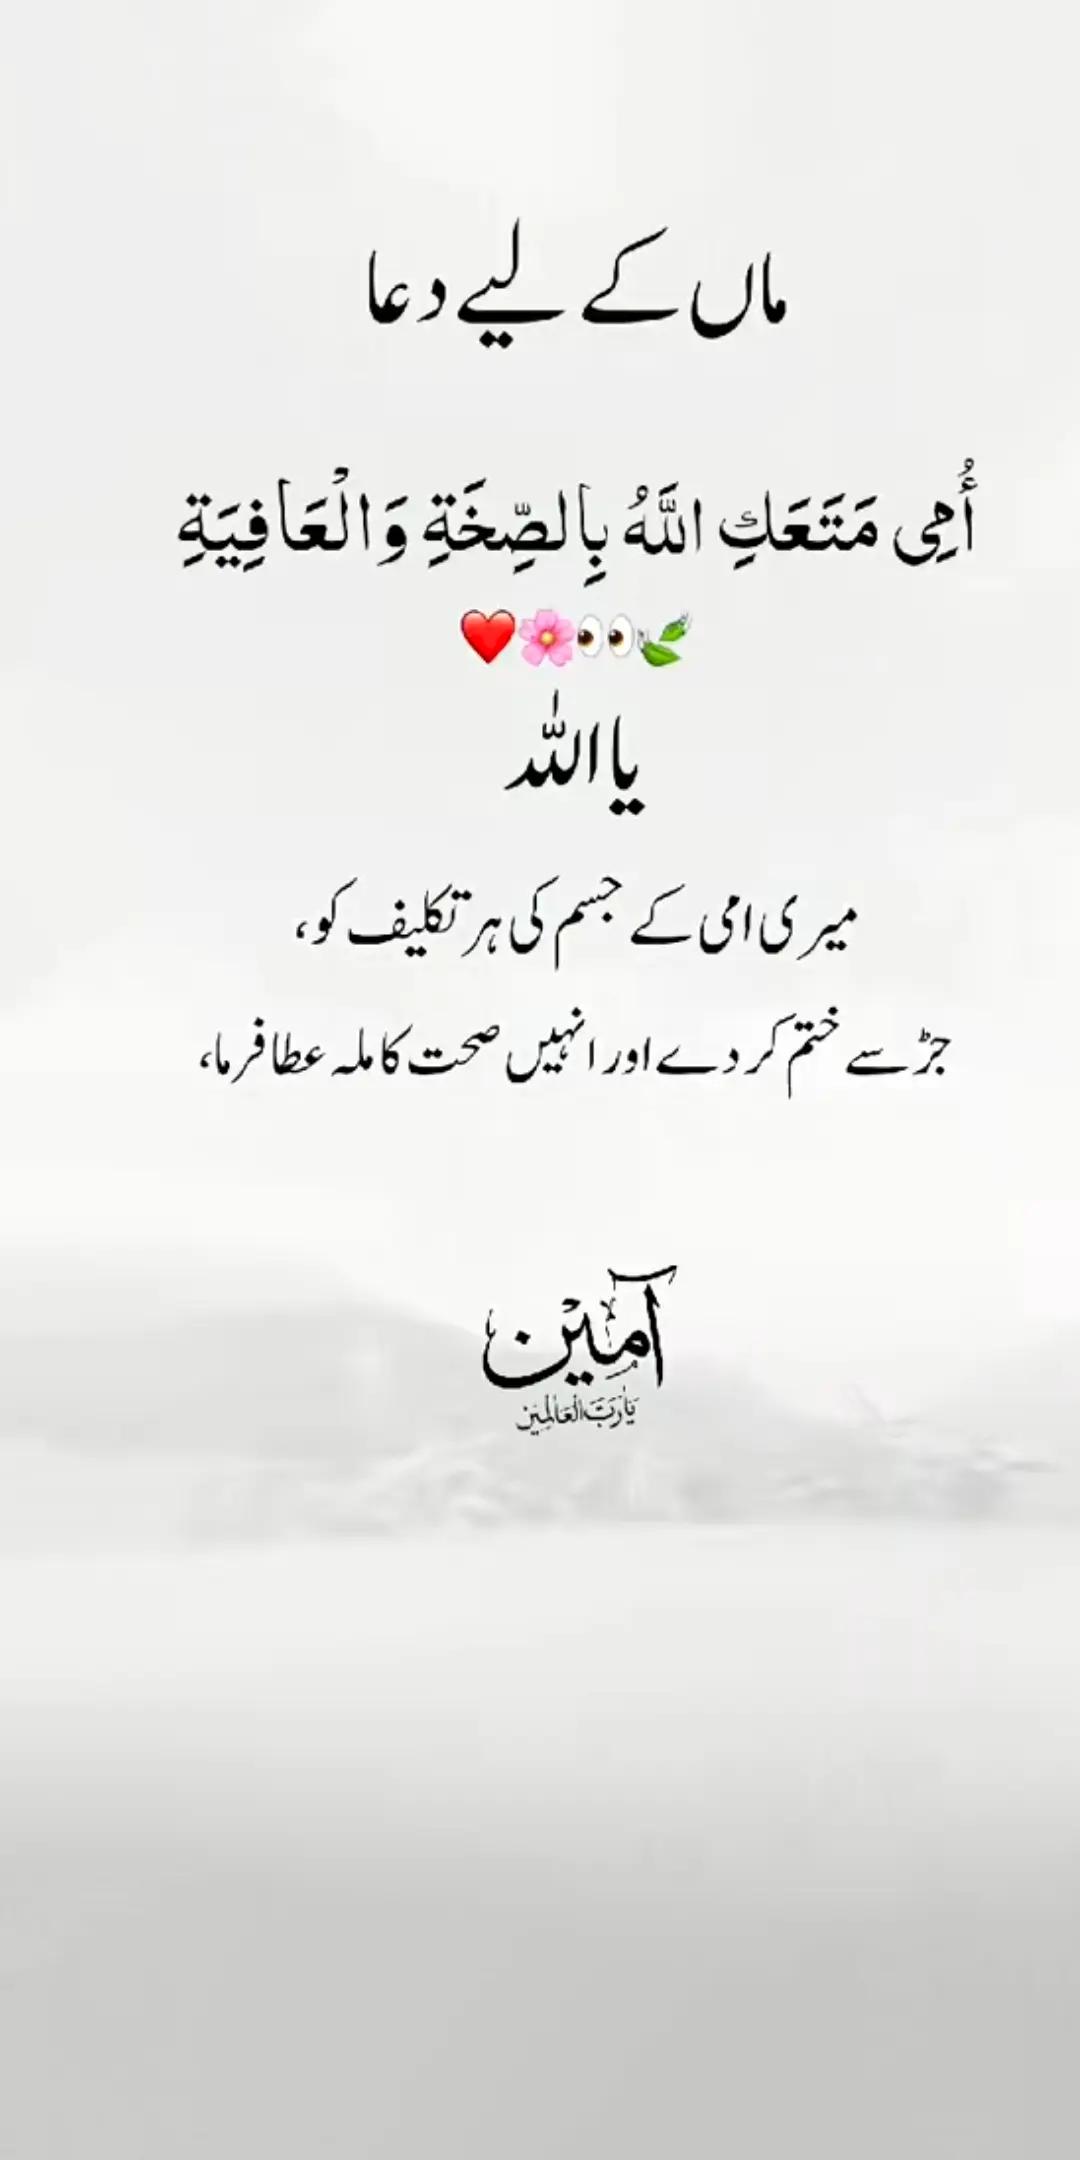 ماں کے لیے دعا
أُمِی مَتَعَكِ اللَّهُ بِالصِّخَةِ وَالْعَافِيَةِ
❤️🌸👀🌿
یا اللہ
میری امی کے جسم کی ہر تکلیف کو،
جڑ سے ختم کر دے اور انہیں صحت کاملہ عطا فرما،
آمِیْن
یَارَبَّ الْعَالَمِیْن